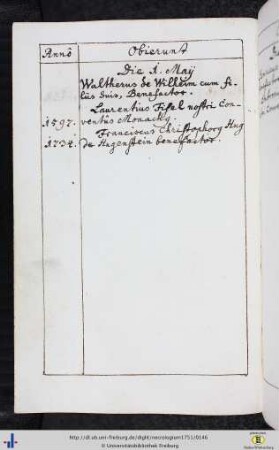 Anno Obierunt
Die 1. Maÿ
Waltherus de Willeim cum fi-
liis suis, Benefactor.
Laurentius Fisel nostri Con-
1597. ventûs Monachy.
Franciscus Christophory Hug
1734. de Hagenstein benefactor.
http://dl.ub.uni-freiburg.de/diglit/necrologium1751/0146
© Universitätsbibliothek Freiburg